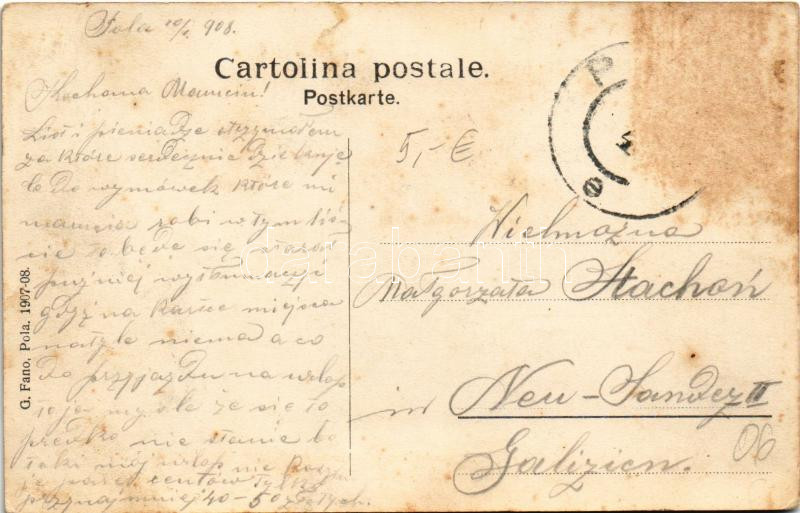 Pola 10/1 908.
Cartolina postale.
Postkarte.
Kochana Mamciu!
List i pieniądze otrzymałem
za które serdecznie dziękuję
Co do wymówek które mi
mamcia robi w tym liś-
cie to będę się starał
później wytłumaczyć
gdyż na kartce miejsca
na tyle niema a co
do przyjazdu na urlop
to ja myślę że się to
prędko nie stanie bo
taki mój urlop nie
centów tylko
przynajmniej 40-50 złotych.
5,- €
P
Wielmożna
Małgorzata Stachoń
in Neu-Sandez II
Galizien.
06
G. Fano, Pola. 1907-08.
darabanth